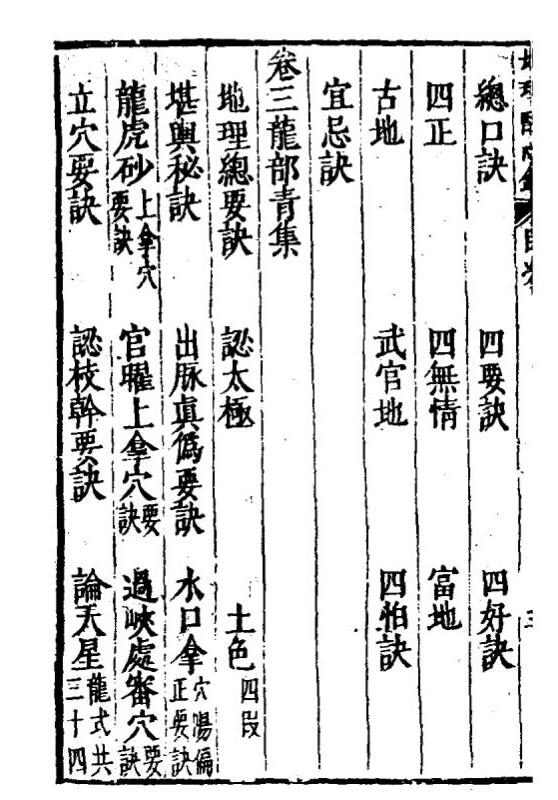 總口訣　四要訣　四好訣
四正　四無情　富地
古地　武官地　四怕訣
宜忌訣
卷三龍部青集
地理總要訣　認太極　土色四段
堪輿秘訣　出脉眞僞要訣　水口拿穴陽偏正要訣
龍虎砂上拿穴要訣　官曜上拿穴要訣　過峽處審穴要訣
立穴要訣　認枝幹要訣　論天星龍式共三十四